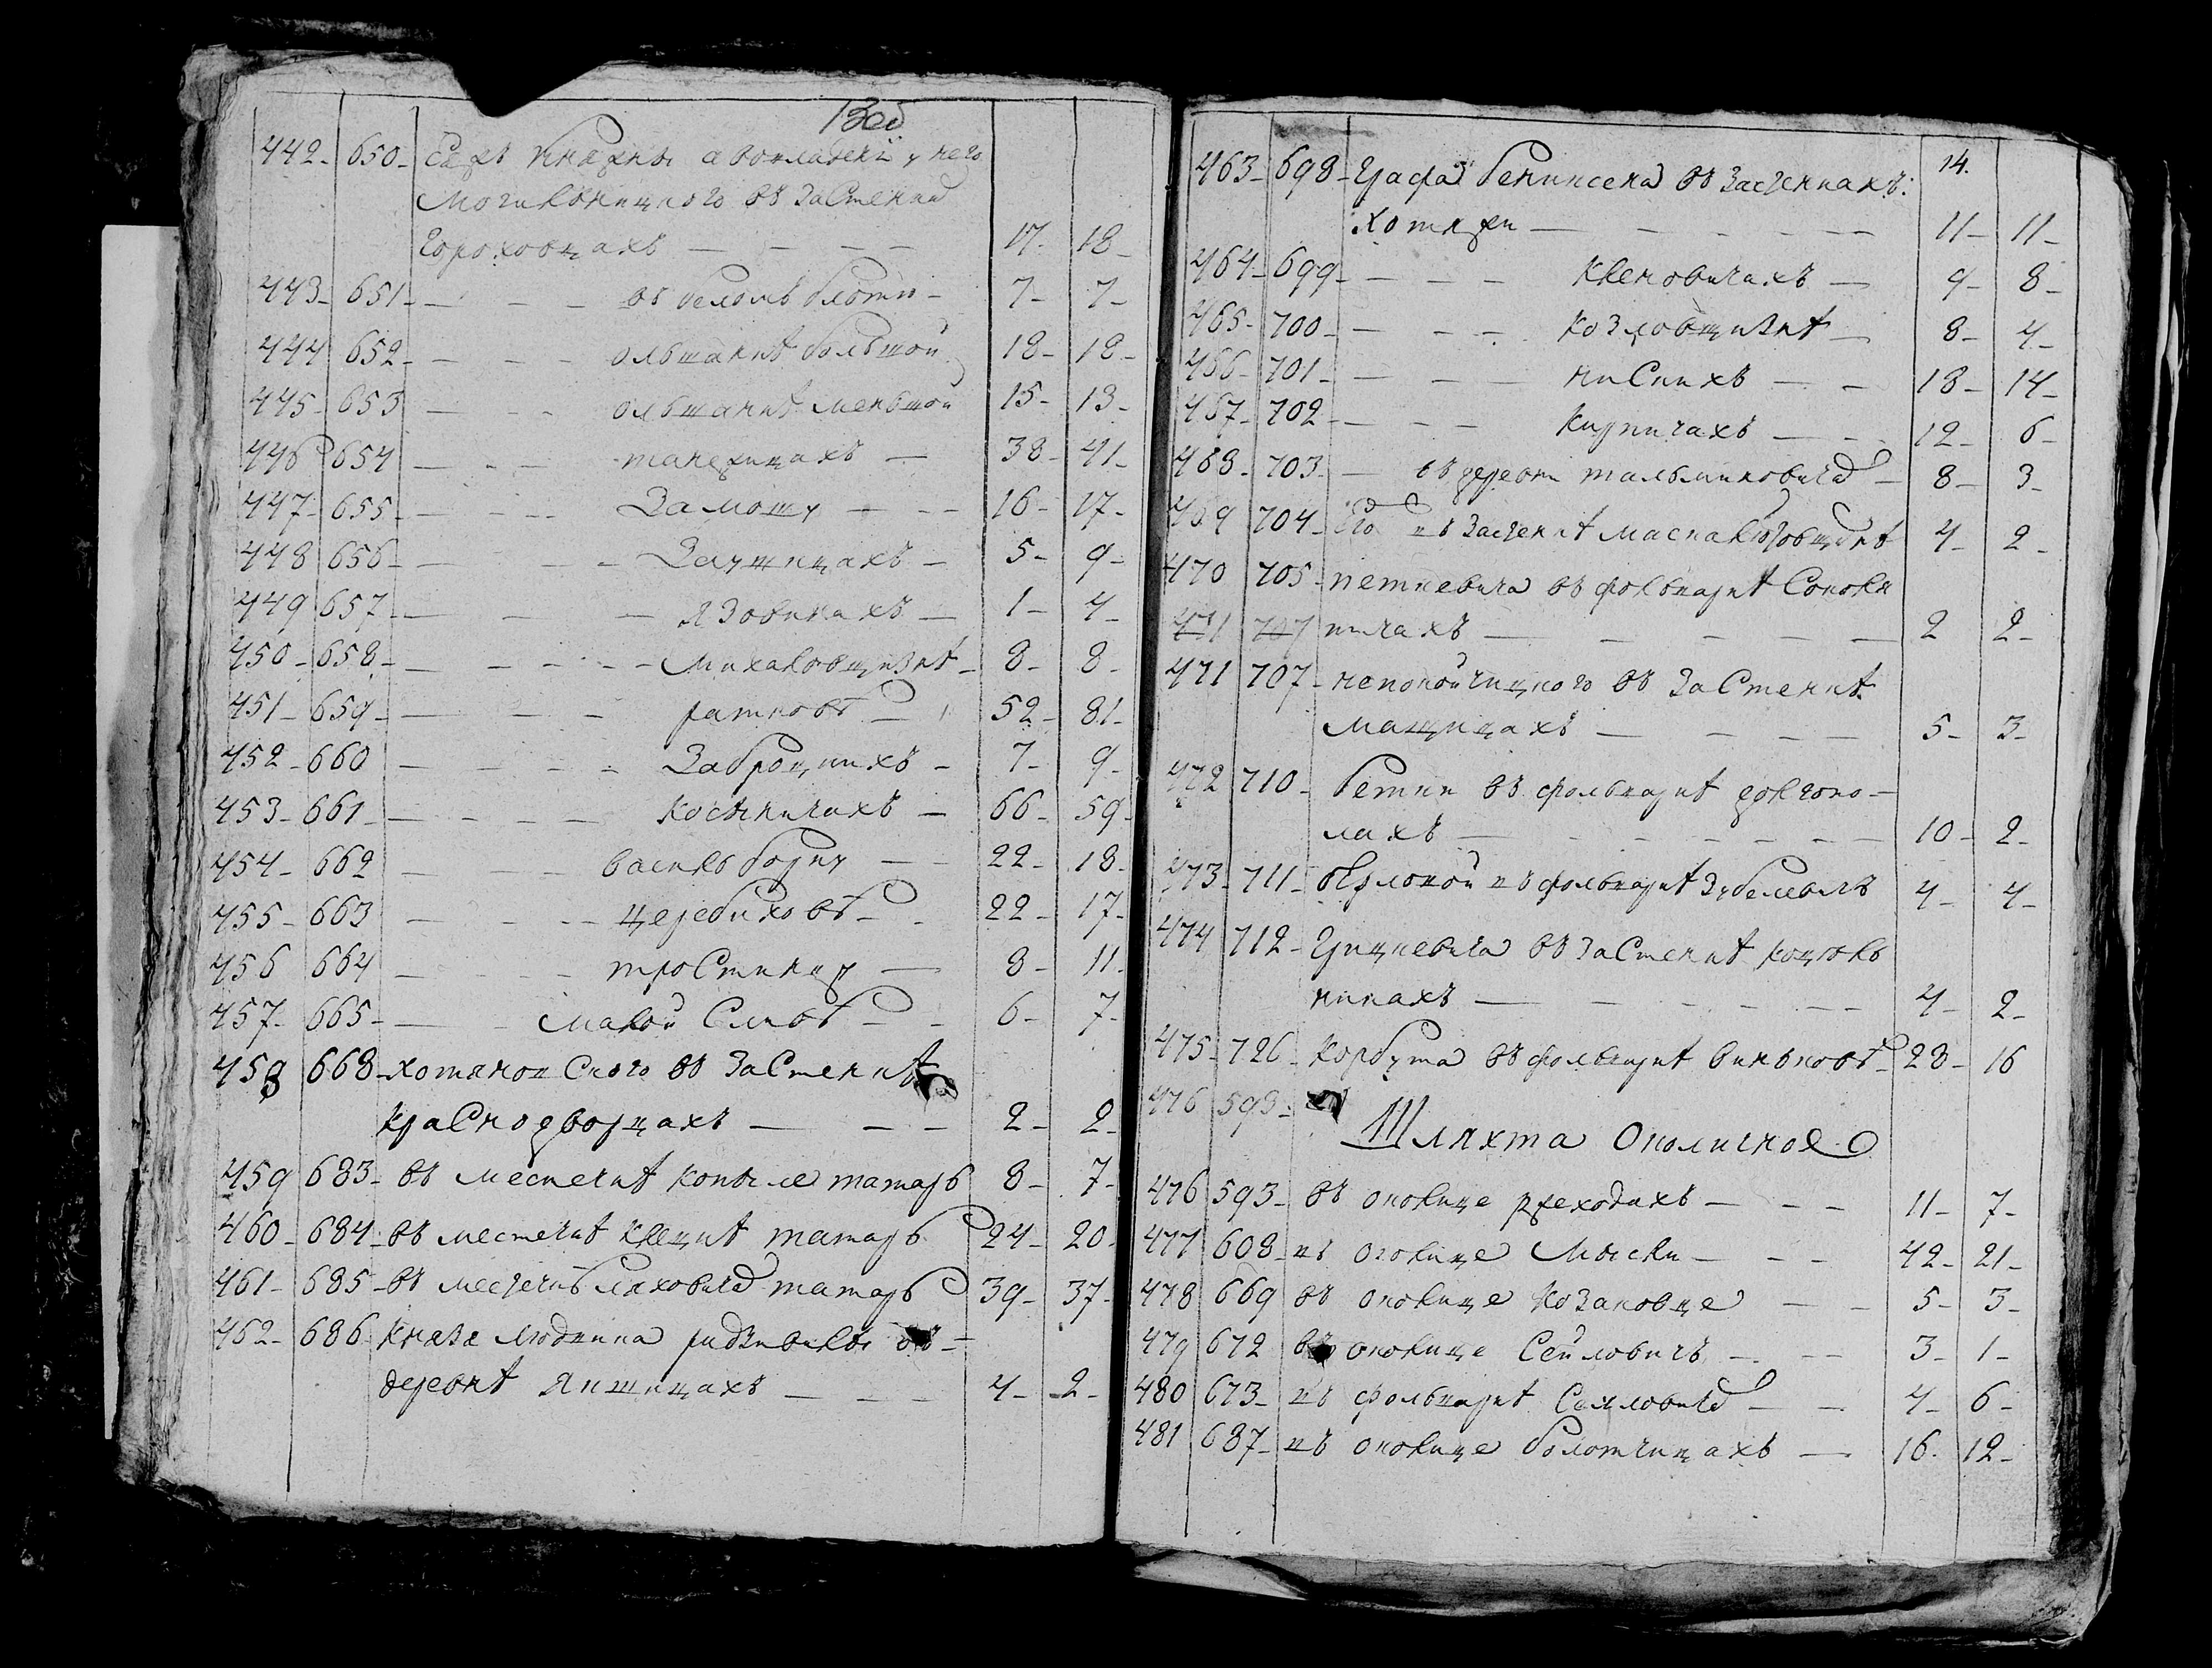 13об
442- 650- Ея жъ княжны а во владении у него
Могильницкого въ Застенки
Гороховцахъ — 17- 18-
443- 651- — въ беломъ блоти- 7- 7-
444 652- — ольшанкѣ большой 18- 18-
445- 653 — ольшанкѣ меньшой 15- 13-
446 654 — танежицахъ — 38- 41-
447- 655- — Замошу — 16- 17-
448 656- — — 5- 9-
449 657- — язовинахъ — 1- 4-
450- 658- — Михаловщизнѣ- 8- 8-
451- 659- — ратковѣ — 52- 81-
452- 660 — Заброцкихъ - 7- 9-
453- 661- — костеничахъ — 66- 59-
454- 662 — василь борку — 22- 18-
455- 663 — церебиховѣ — 22- 17-
456 664 — тростинцу — 8- 11-
457- 665- — малой Сливѣ — 6- 7-
458 668- хотяновского въ Застенкѣ
Краснодворцахъ — 2- 2-
459 683- въ местечкѣ копыле татаръ 8- 7-
460- 684- въ местечкѣ клецкѣ татаръ 24- 20-
461- 685- въ местечкѣ ляховича татаръ 39- 37-
462- 686- Князя Людвика радзивила въ-
деревнѣ Якшицахъ — 4- 2-
14.
463- 698- Графа Бенинсена въ Застенкахъ:
хотяжи — 11- 11-
464- 699- — кленовичахъ — 9- 8-
465- 700- — козловщизнѣ — 8- 4-
466- 701- — — 18- 14-
467- 702- — кирпичахъ — 12- 6-
468- 703- — въ деревни тальминовича — 8- 3-
469 704- Его въ Застенкѣ 4- 2-
470 705- петкевича въ фольваркѣ Соколи
471 707 ничахъ — 2 2-
471 707- непокойчицкого въ Застенкѣ
Мащицахъ — 5- 3-
472 710- Беткин въ фольваркѣ долгопо-
лахъ — 10- 2-
473- 711- въ фольваркѣ Зубелевичъ 4- 4-
474 712- Грицкевича въ Застенкѣ коцюль
никахъ — 4- 2-
475- 726- Корбута въ фольваркѣ виньковѣ- 28- 16
476 593-
Шляхта Околичная
476 593- въ околице ржеходахъ — 11- 7-
477 608- въ околице Мысли — 42- 21-
478 669 въ околице козаковце — 5- 3-
479 672 въ околице Сейловичъ — 3- 1-
480 673- въ фольваркѣ Сейловича — 4- 6-
481 687- въ околице болотчицахъ — 16- 12-